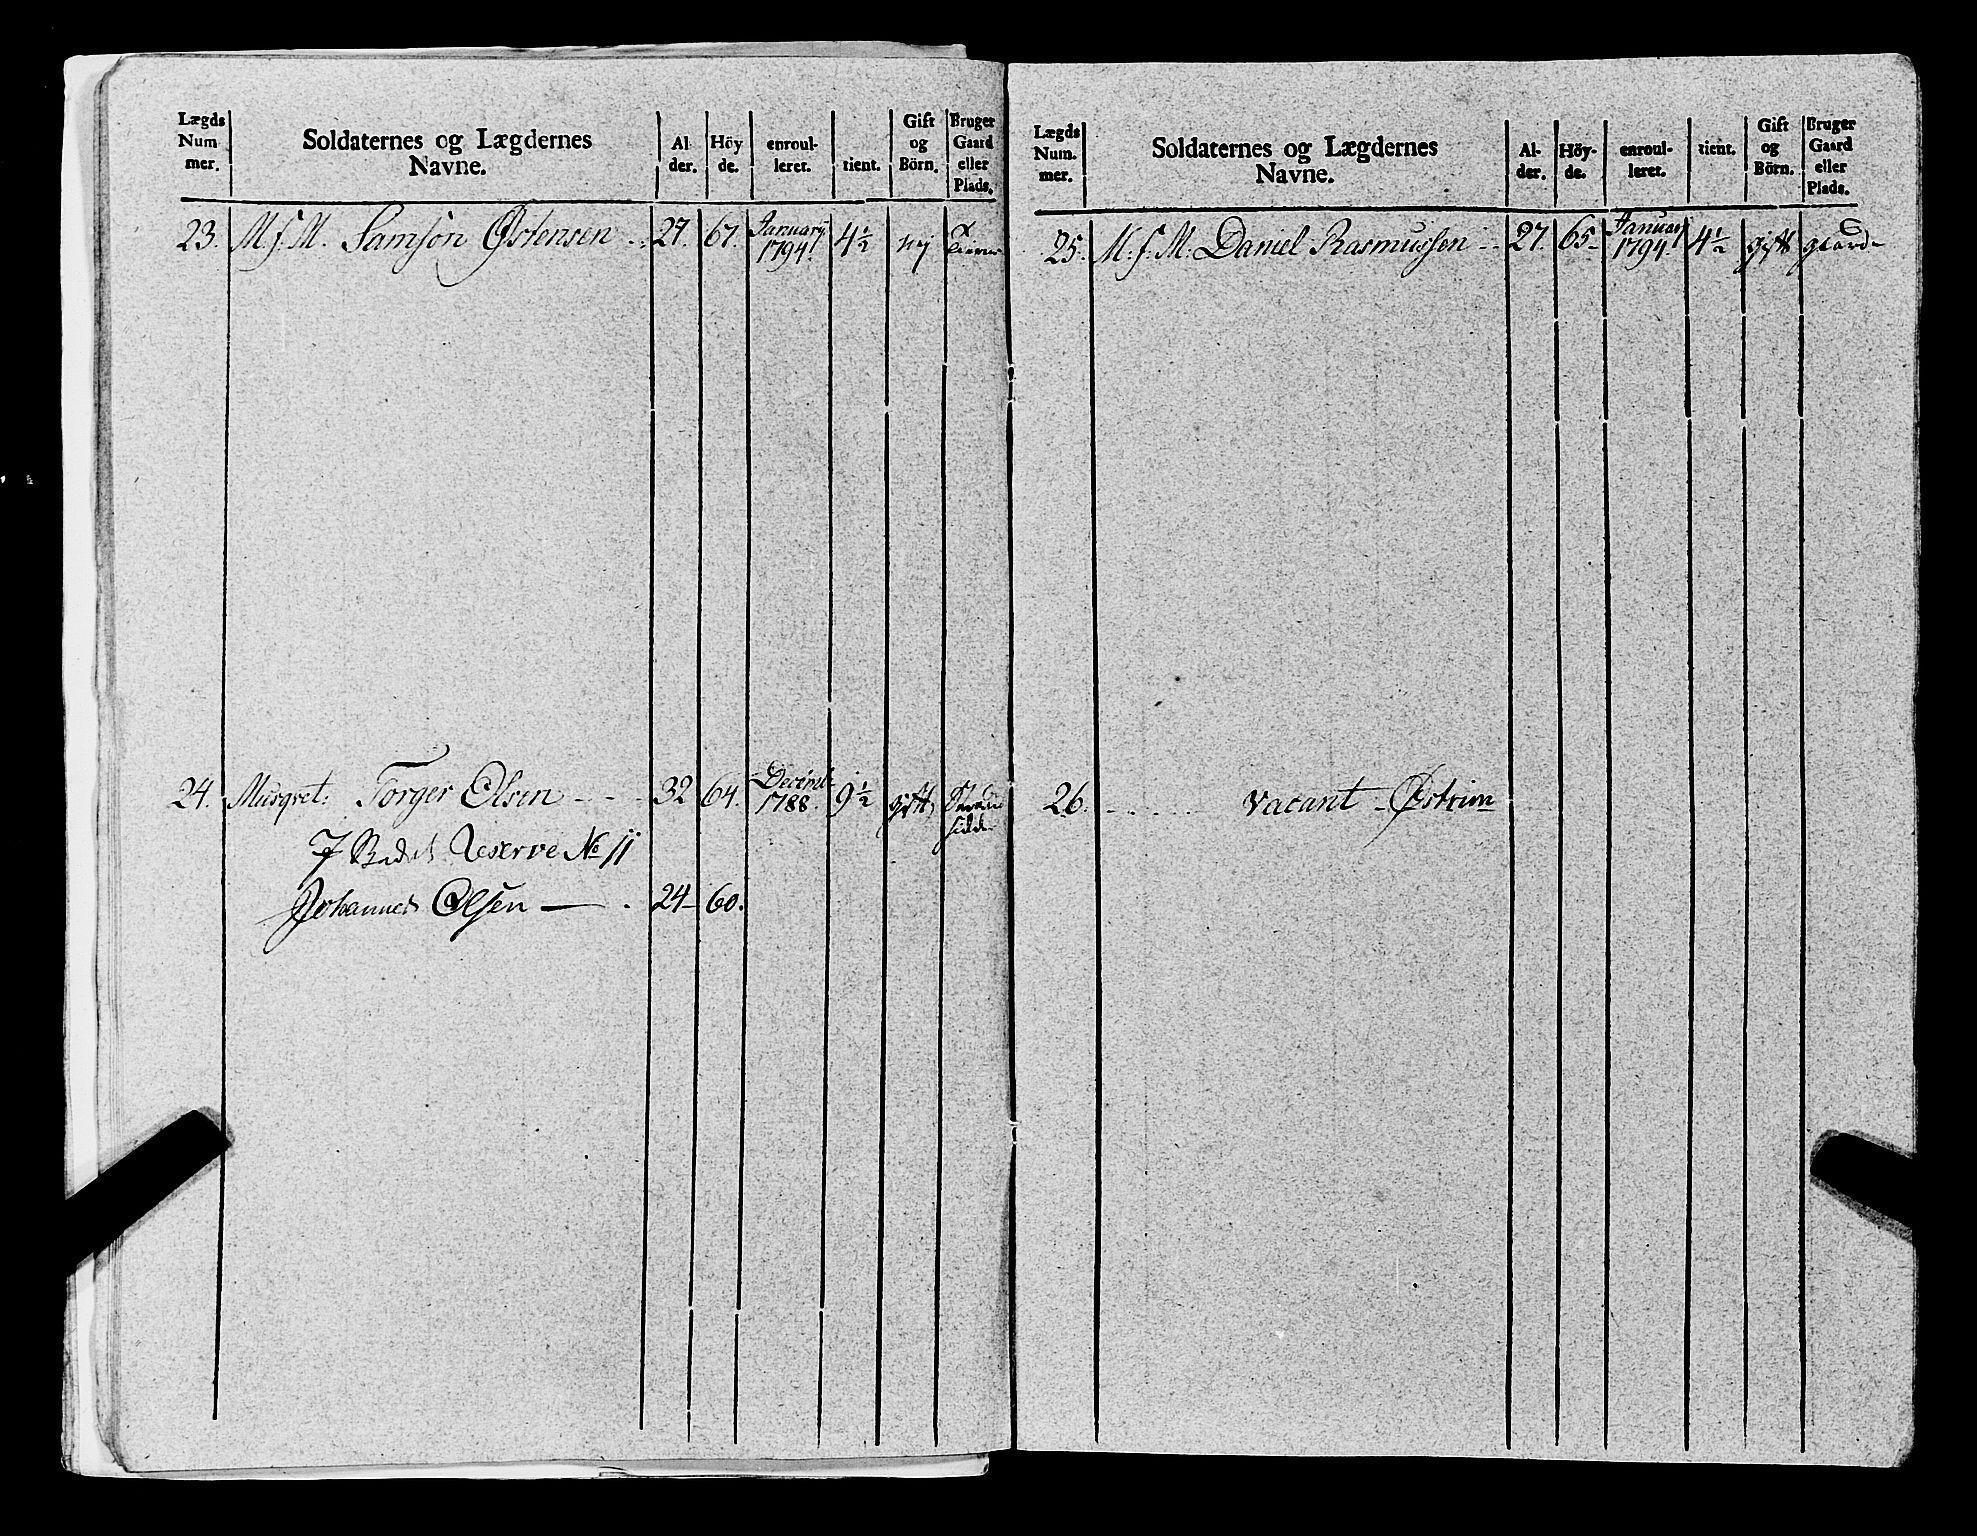 Lægds Num- mer. Soldaternes og Lægdernes Navne. Al- der. Höy de. enroul- leret. tient. Gift og Börn. Bruger Gaard eller Plads.
23. M. f. M. Samson Østensen 27. 67. January 1794. 4 1/2 nej
24. Musqvet: Torger Olsen 32 64. Decemb. 1788. 9 1/2 gift
Reserve No 11
Johannes Olsen 24 60.
Lægds Num. mer. Soldaternes og Lægdernes Navne. Al- der. Höy- de. enroul- leret. tient. Gift og Börn. Bruger Gaard eller Plads.
25. M. f. M. Daniel Rasmussen 27. 65 January 1794. 4 1/2 gift gaard
26. vacant Østrim